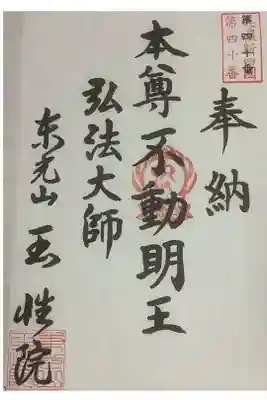 奉納
本尊不動明王
弘法大師
东光山 玉性院
第四十番